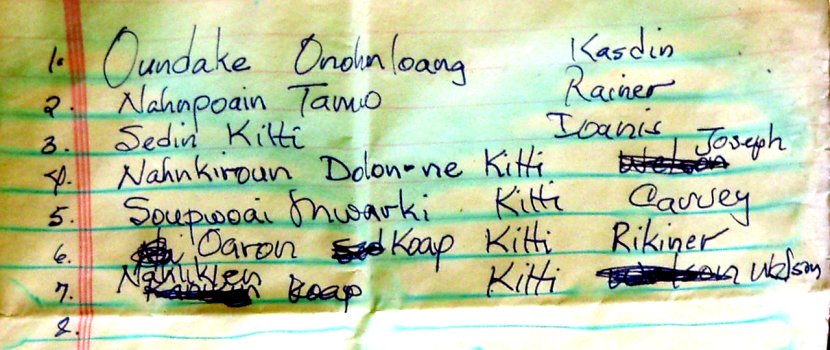 1. Oundake Onohnloang Kasdin
2. Nahnpoain Tamo Rainer
3. Sedin Kitti Ioanis
4. Nahnkiroun Dolon-ne Kitti Joseph
5. Soupwoai Kitti Cavvey
6. Oaron Koap Kitti Rikiner
7. Nahliklen Koap Kitti Welson
8.